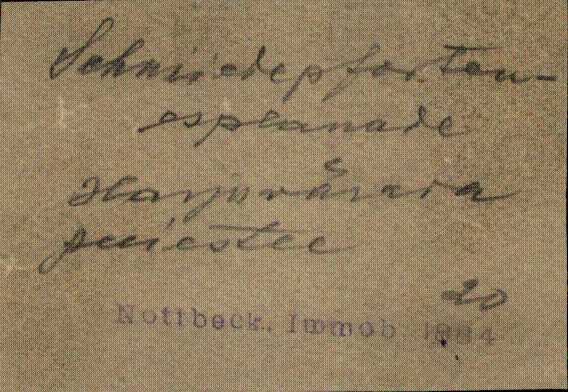 Schmiedepforten-
esplanade
Harjuvärava
puiestee
20
Nottbeck. Immob 1884